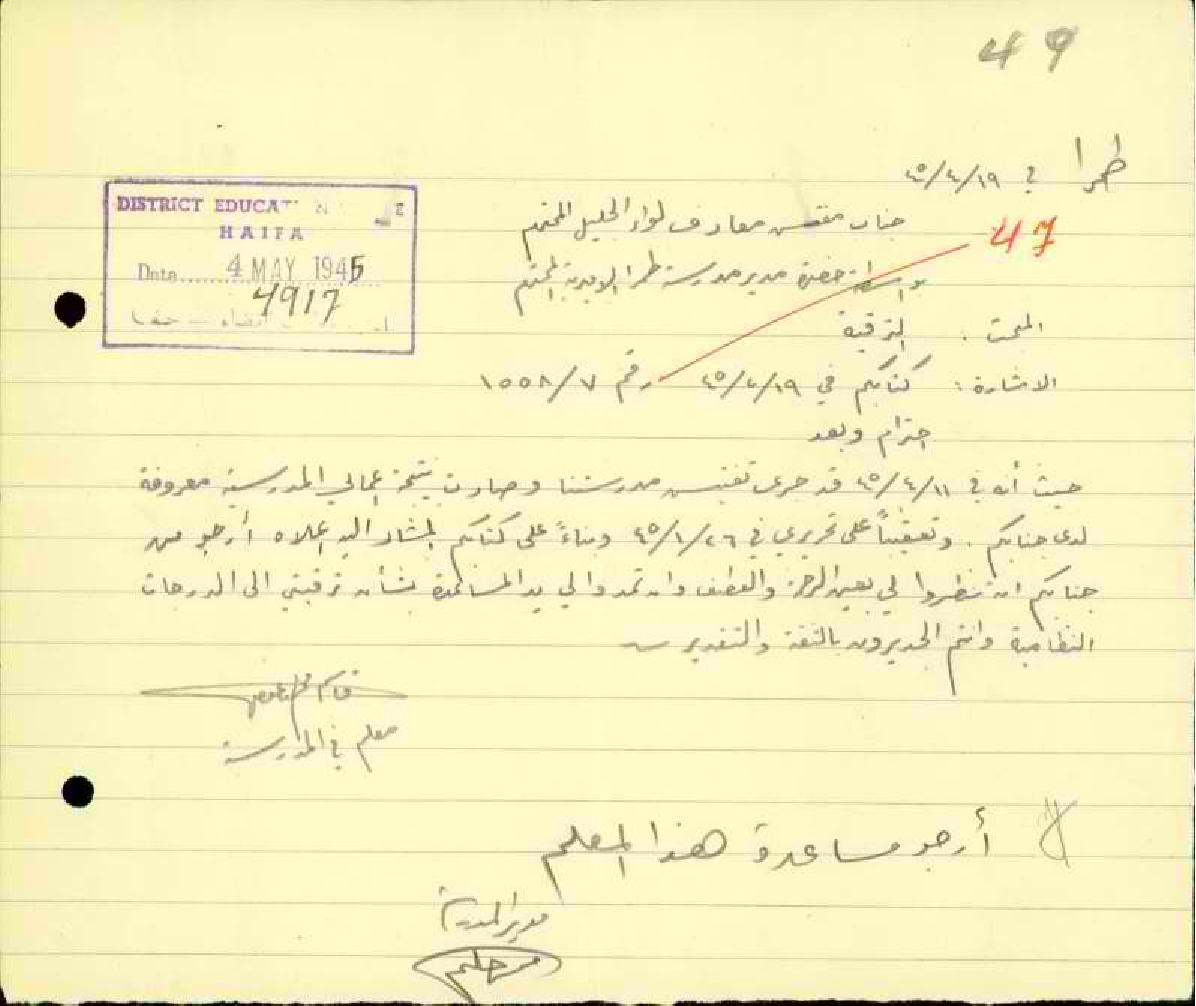 49
طمرا في ٤٥/٤/١٩
جناب مفتش معارف لواء الجليل المحترم
47
بواسطة حضرة مدير مدرسة طمرا الاميرية المحترم
DISTRICT EDUCAT
HAIFA
Date 4 MAY 1945
4917
المبحث : الترقية
الاشارة : كتابكم في ٤٥/٤/١٩ رقم ١٥٥٨/٧
احترام وبعد
حيث أنه في ٤٥/٤/١١ قد جرى تفتيش مدرستنا وصارت نتيجة اعمالي المدرسية معروفة
لدى جنابكم . وتعقيباً على تحريري في ٤٥/١/٢٦ وبناءً على كتابكم المشار اليه اعلاه أرجو من
جنابكم ان تنظروا لي بعين الرحمة والعطف وان تمدوا لي يد المساعدة بشأن ترقيتي الى الدرجات
النظامية وانتم الجديرون بالثقة والتقدير
قاسم
معلم في المدرسة
أرجو مساعدة هذا المعلم
مدير المدرسة